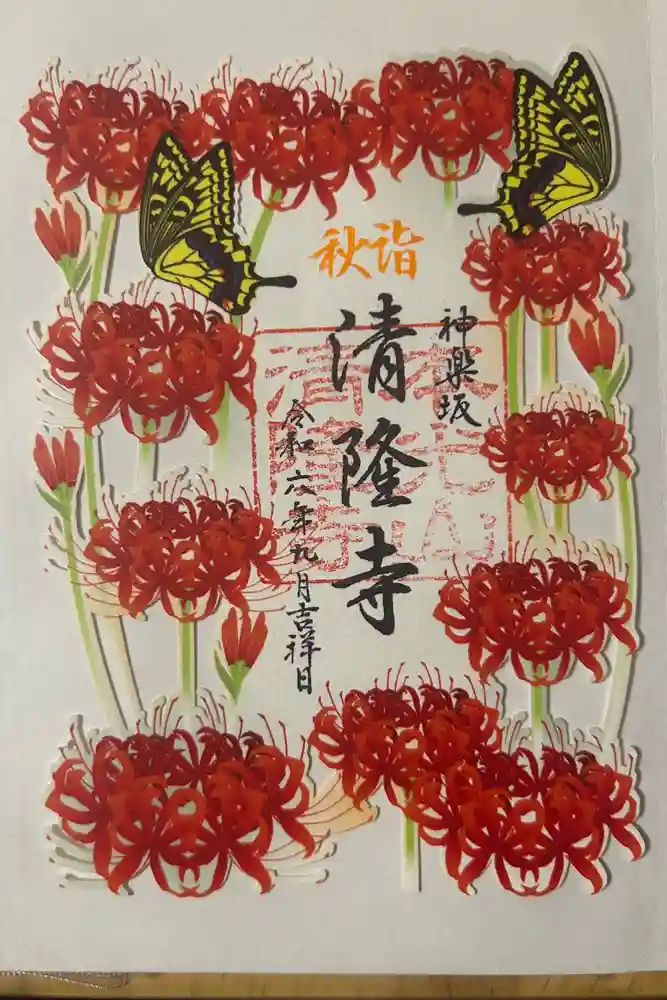 秋詣
神楽坂
清隆寺
令和六年九月吉祥日